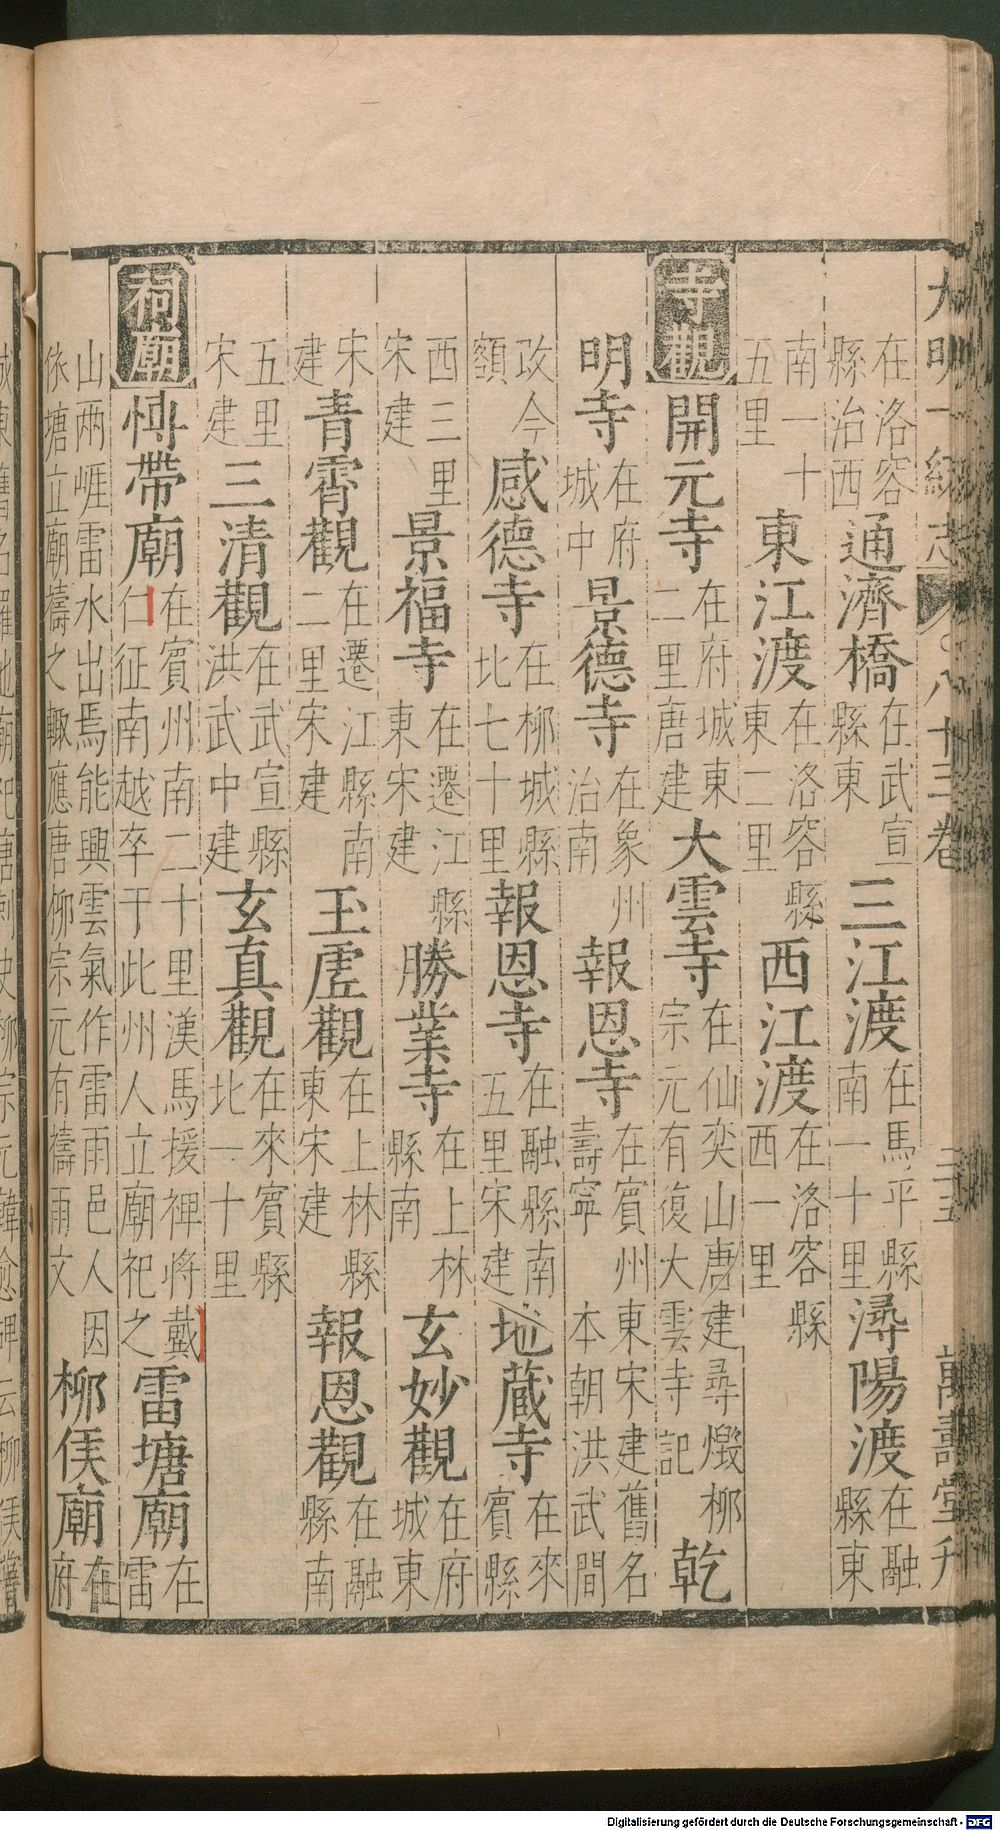 大明一統志 八十三卷 三五 萬壽堂刊
在洛容縣治西 通濟橋 在武宣縣東 三江渡 在馬平縣南一十里 潯陽渡 在融縣東
南一十五里 東江渡 在洛容縣東二里 西江渡 在洛容縣西一里
寺觀 開元寺 在府城東二里唐建 大雲寺 在仙奕山唐建尋燬柳宗元有復大雲寺記 乾
明寺 在府城中 景德寺 在象州治南 報恩寺 在賓州東宋建舊名壽寧 本朝洪武間
改今額 感德寺 在柳城縣北七十里 報恩寺 在融縣南五里宋建 地藏寺 在來賓縣
西三里宋建 景福寺 在遷江縣東宋建 勝業寺 在上林縣南 玄妙觀 在府城東
宋建 青霄觀 在遷江縣南二里宋建 玉虛觀 在上林縣東宋建 報恩觀 在融縣南
五里宋建 三清觀 在武宣縣洪武中建 玄真觀 在來賓縣北一十里
祠廟 慱帶廟 在賓州南二十里漢馬援裨將戴仁征南越卒于此州人立廟祀之 雷塘廟 在雷
山兩崕雷水出焉能興雲氣作雷雨邑人因依塘立廟禱之輙應唐柳宗元有禱雨文 柳侯廟 在府
Digitalisierung gefördert durch die Deutsche Forschungsgemeinschaft - DFG